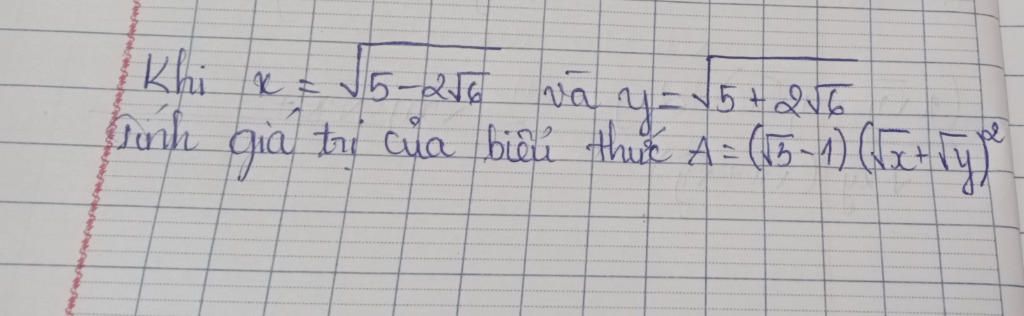 Khi x = √(5 - 2√6) và y = √(5 + 2√6)
Tính giá trị của biểu thức A = (√3 - 1)(√x + √y)²